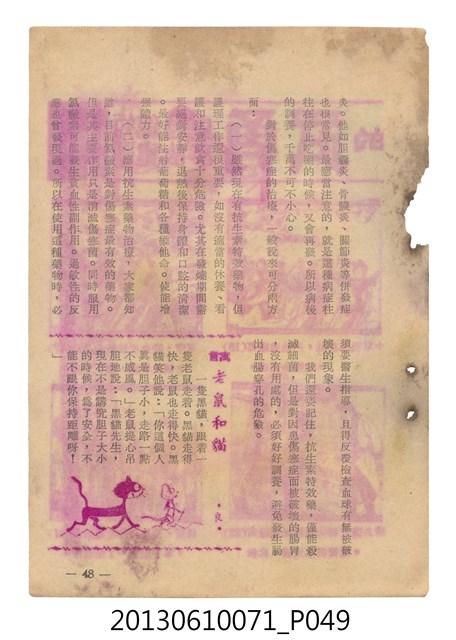 炎。他如胆囊炎、骨髓炎、關節炎等併發症
也很常見。最應當注意的，就是這種病症往
往在停止吃藥的時候，又會再發。所以病後
的調養，千萬不可不小心。
對於傷寒症的治療，一般說來可分兩方
面：
（一）雖然現在有抗生素特效藥物，但
護理工作還很重要，如沒有適當的休養、看
護和注意飲食十分危險。尤其在發燒期間需
要絕對安靜，退熱後保持身體和口腔的清潔
。最好能注射葡萄糖和各種維他命。使能增
強體力。
（二）應用抗生素藥物治療，大家都知
道，目前氯黴素是對傷寒症最有效的藥物。
但是其主要作用只是消滅傷寒菌。同時服用
氯黴素可能發生貧血性副作用。過敏性的反
應也曾發現過。所以在使用這種藥物時，必
須要醫生指導，且得反覆檢查血球有無被破
壞的現象。
我們還要記住，抗生素特效藥，僅能殺
滅細菌，但是對因患傷寒症而被破壞的腸胃
，沒有用處的，必須好好調養，避免發生腸
出血腸穿孔的危險。
寓言
老鼠和貓
·良·
一隻黑貓，跟着一
隻老鼠走着。黑貓走得
快，老鼠也走得快。黑
貓笑他說：「你這個人
眞是胆子小，走路一點
不威風。」老鼠提心吊
胆地說：「黑貓先生，
現在不是講究胆子大小
的時候，爲了安全，不
能不跟你保持距離呀！
」
— 48 —
20130610071_P049